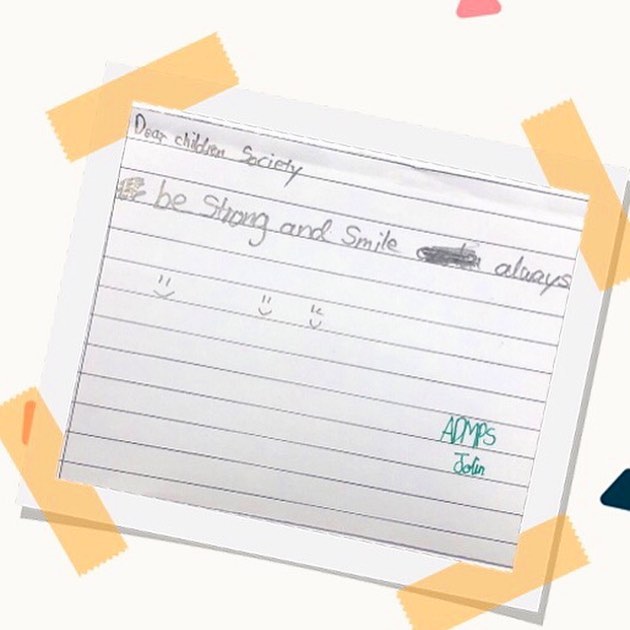 Dear children Society
be Strong and Smile always
ADMPS
Jolin